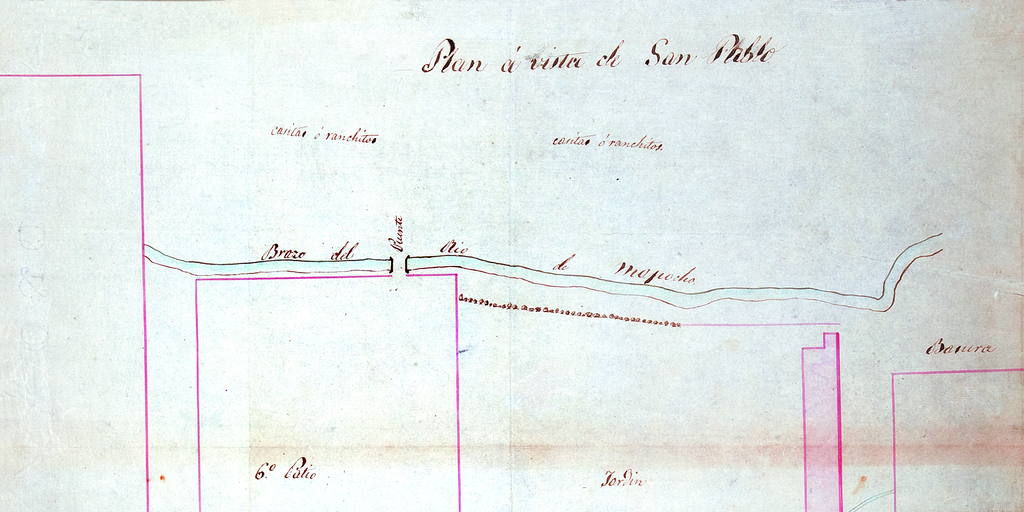 Plan á vista de San Pablo
casitas ó ranchitos
casitas ó ranchitos.
Puente
Brazo del Rio de Mapocho
Basura
6.º Patio
Jardin